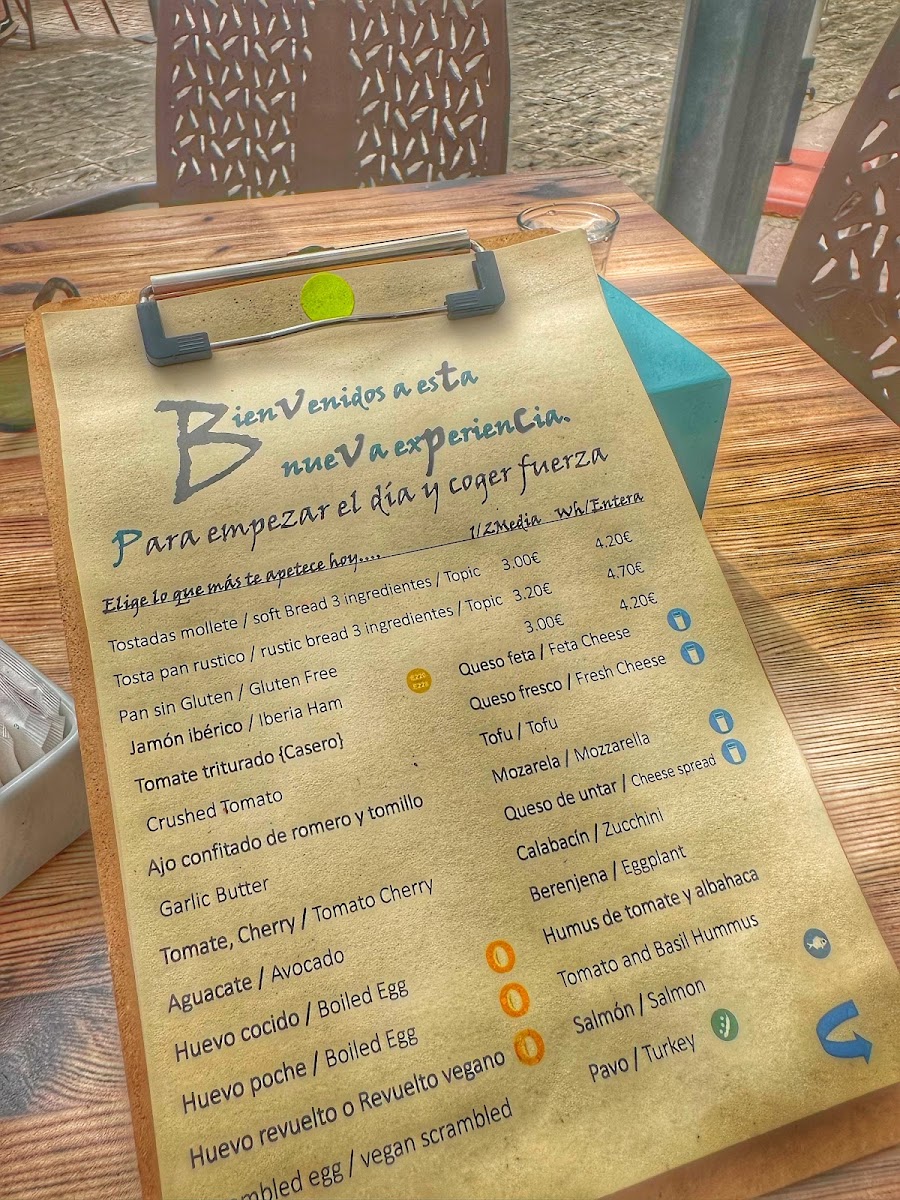 Bienvenidos a esta
nueva experiencia.
Para empezar el día y coger fuerza
Elige lo que más te apetece hoy.... 1/2Media Wh/Entera
Tostadas mollete / soft Bread 3 ingredientes / Topic 3.00€ 4.20€
Tosta pan rustico / rustic bread 3 ingredientes / Topic 3.20€ 4.70€
Pan sin Gluten / Gluten Free 3.00€ 4.20€
Jamón ibérico / Iberia Ham
Tomate triturado {Casero}
Crushed Tomato
Ajo confitado de romero y tomillo
Garlic Butter
Tomate, Cherry / Tomato Cherry
Aguacate / Avocado
Huevo cocido / Boiled Egg
Huevo poche / Boiled Egg
Huevo revuelto o Revuelto vegano
egg / vegan scrambled
Queso feta / Feta Cheese
Queso fresco / Fresh Cheese
Tofu / Tofu
Mozarela / Mozzarella
Queso de untar / Cheese spread
Calabacín / Zucchini
Berenjena / Eggplant
Humus de tomate y albahaca
Tomato and Basil Hummus
Salmón / Salmon
Pavo / Turkey